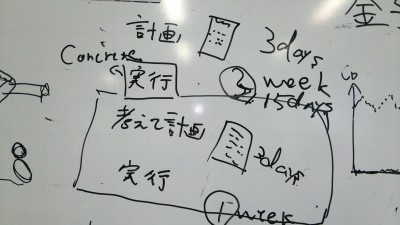 計画
3days
Concrete
実行
3 week
15days
考えて計画
3days
実行
1 week